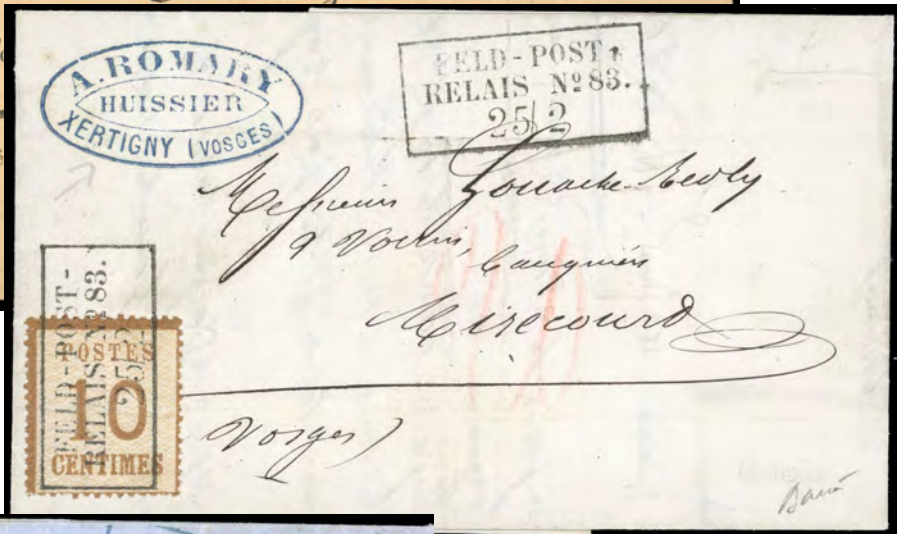 A. ROMARY
HUISSIER
XERTIGNY (VOSGES)
FELD-POST
RELAIS Nº 83.
25/2
Messieurs
&
Banquiers
Mirecourt
Vosges
FELD-POST-
RELAIS Nº 83.
25/2
POSTES
10
CENTIMES